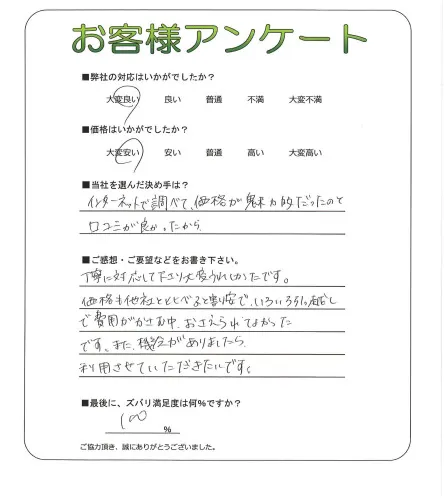 お客様アンケート
■弊社の対応はいかがでしたか?
大変良い 良い 普通 不満 大変不満
■価格はいかがでしたか?
大変安い 安い 普通 高い 大変高い
■当社を選んだ決め手は?
インターネットで調べて、価格が魅力的だったのと
口コミが良かったから
■ご感想・ご要望などをお書き下さい。
丁寧に対応して下さり大変うれしかったです。
価格も他社とくらべると割安で、いろいろ引っ越し
で費用がかさむ中、おさえられてよかった
です。また、機会がありましたら
利用させていただきたいです。
■最後に、ズバリ満足度は何%ですか?
100
%
ご協力頂き、誠にありがとうございました。